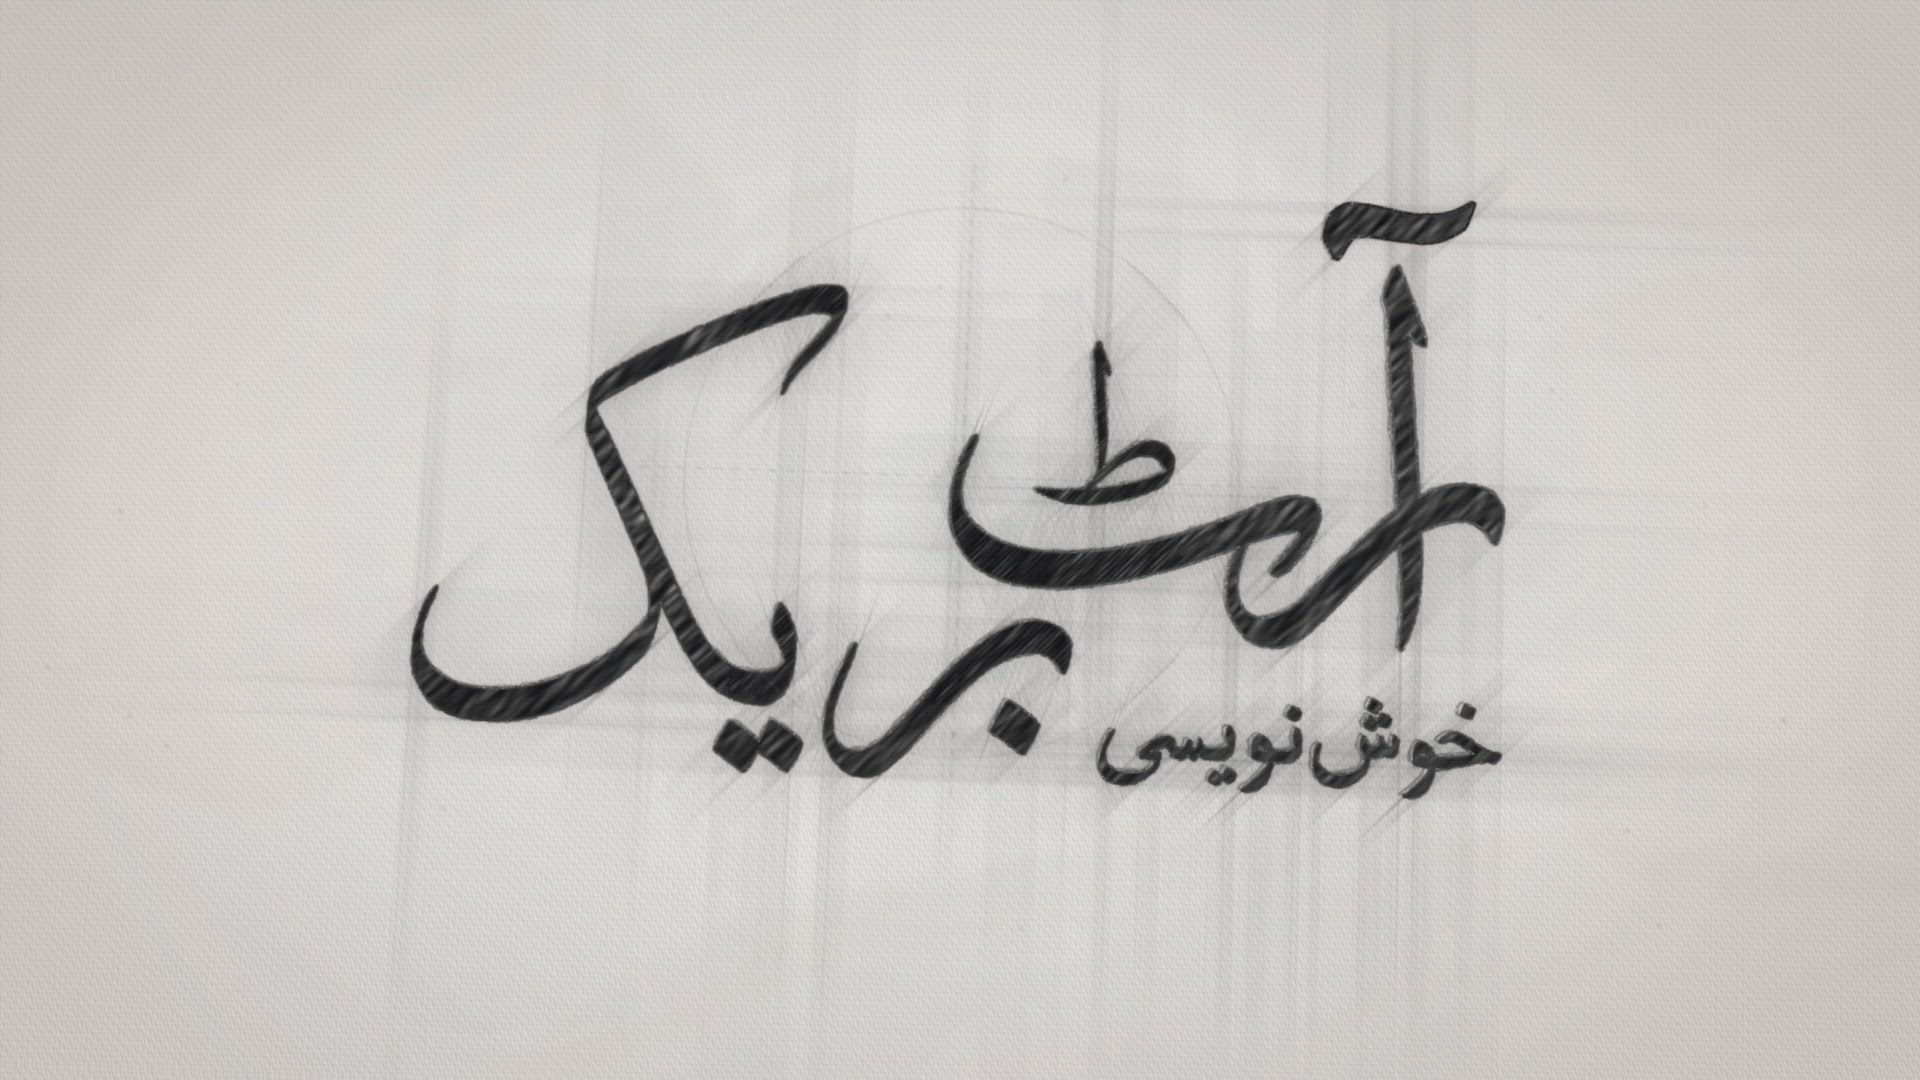 آرٹ بریک
خوش نویسی